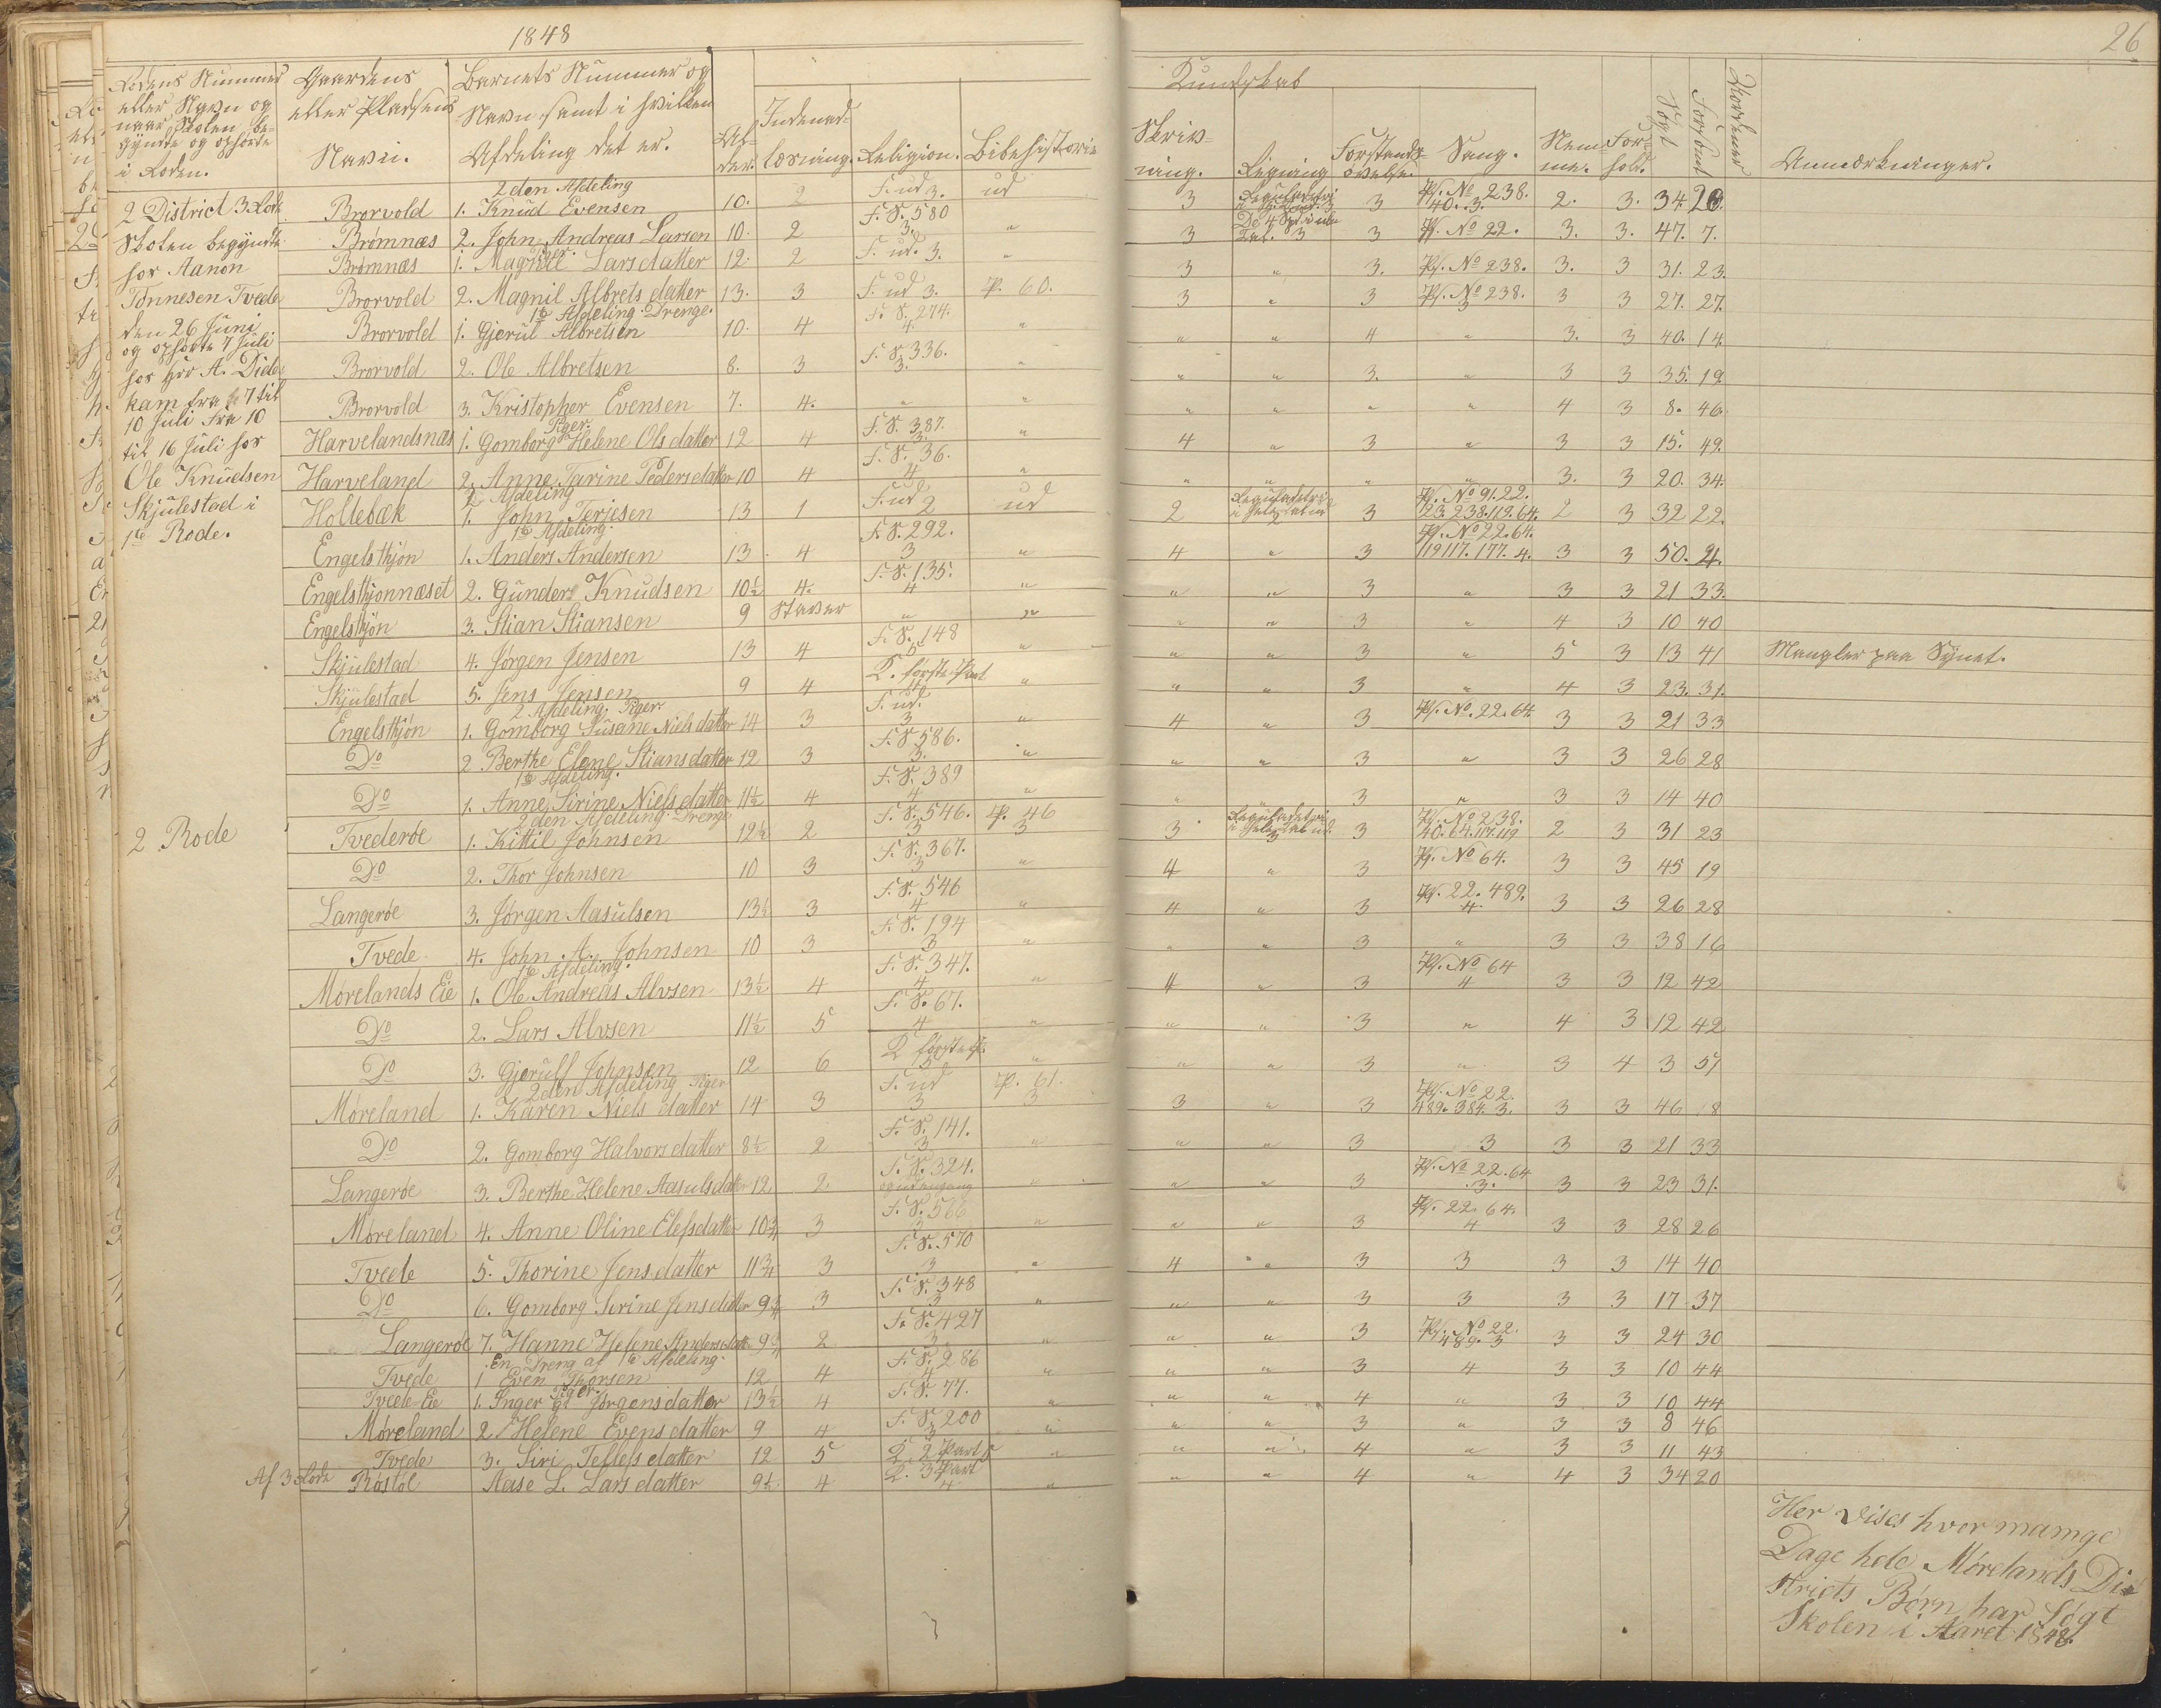 1848
26
Rodens Nummer eller Navn og naar Skolen begyndte og ophørte i Roden.
Gaardens eller Pladsens Navn.
Barnets Nummer og Navn, samt i hvilken Afdeling det er.
Alder.
Kundskab
Indenadlæsning. Religion. Bibelhistorie
Skrivning. Regning Forstandsøvelse. Sang.
Nemme. Forhold.
Søgt Forsømt Skoledage
Anmærkninger.
2 District 3 Rode
Skolen begyndte
hos Aanon
Tønnesen Tvede
den 26 Juni
og ophørte 7 Juli
hos A. Dide
kam fra 7 til
10 Juli fra 10
til 16 Juli hos
Ole Knudsen
Skjulestad i
1te Rode.
2den Afdeling
Brorvold 1. Knud Evensen 10. 2 F. ud 3. ud 3 3 Ps. No 238. 40. 3. 2. 3. 34. 20.
Brømnæs 2. John Andreas Larsen 10. 2 F. S. 580 3. " 3 3 Ps. No 22. 3. 3. 47. 7.
Piger.
Brømnæs 1. Magnil Larsdatter 12. 2 F. ud. 3. " 3 " 3. Ps. No 238. 3. 3 31. 23.
Brorvold 2. Magnil Albretsdatter 13. 3 F. ud 3. P. 60. 3 " 3 Ps. No 238. 3 3 3 27. 27.
1te Afdeling. Drenge.
Brorvold 1. Gjerul Albretsen 10. 4 F. S. 274. 4. " " " 4 " 3. 3 40. 14.
Brorvold 2. Ole Albretsen 8. 3 F. S. 336. 3. " " " 3. " 3 3 35. 19.
Brorvold 3. Kristopher Evensen 7. 4. " " " " " " 4 3 8. 46.
Piger.
Harvelandsnæs 1. Gomborg Helene Olsdatter 12 4 F. S. 387. 3 " 4 " 3 " 3 3 15. 49.
Harveland 2. Anne Tarine Pedersdatter 10 4 F. S. 36. 4 " " " " " 3. 3 20. 34.
2 Afdeling
Hollebæk 1. John Terjesen 13 1 F. ud 2 ud 2 2 3 Ps. No 91. 22. 23. 238. 119. 64. 2 3 32 22.
1te Afdeling.
Engelsthjøn 1. Anders Andersen 13. 4 F. S. 292. 3 " 4 " 3 Ps. No 22. 64. 119 117. 177. 4. 3 3 50. 4.
Engelsthjonnæset 2. Gunder Knudsen 10½ 4. F. S. 135. 4 " " " 3 " 3 3 21 33.
Engelstjøn 3. Stian Stiansen 9 Staver " " " " 3 " 4 3 10 40
Skjulestad 4. Jørgen Jensen 13 4 F. S. 148 5 " " " 3 " 5 3 13 41 Mangler paa Synet.
Skjulestad 5. Jens Jensen 9 4 L. første Part 4 " " " 3 " 4 3 23. 31.
2 Afdeling. Piger.
Engelstjøn 1. Gomborg Susane Nielsdatter 14 3 F. ud. 3 " 4 " 3 Ps. No. 22. 64. 3 3 21 33
Do 2 Berthe Elene Stiansdatter 12 3 F. S. 586. 3. " " " 3 " 3 3 26 28
1te Afdeling.
Do 1. Anne Sirine Nielsdatter 11½ 4 F. S. 389 4 " " " 3 " 3 3 14 40
2 Rode
2den Afdeling Drenge
Tvederøe 1. Kittil Johnsen 12½ 2 F. S. 546. 3 P. 46 3 3 3 3 Ps. No 238. 20. 64. 117. 119 2 3 31 23
Do 2. Thor Johnsen 10 3 F. S. 367. 3 " 4 " 3 Ps. No 64. 3 3 45 19
Langerøe 3. Jørgen Aasulsen 13½ 3 F. S. 546 4 " 4 " 3 Ps. 22. 489. 4. 3 3 26 28
Tvede 4. John A. Johnsen 10 3 F. S. 194 3 " " " 3 " 3 3 38 16
1te Afdeling.
Mørelands Eie 1. Ole Andreas Alvsen 13½ 4 F. S. 347. 4 " 4 " 3 Ps. No 64 4 3 3 12 42
Do 2. Lars Alvsen 11½ 5 F. S. 67. 4 " " " 3 " 4 3 12 42
Do 3. Gjerulf Johnsen 12 6 L første P. 5 " " " 3 " 3 4 3 51
2den Afdeling Piger
Møreland 1. Karen Nielsdatter 14 3 F. ud 3 P. 61. 3 3 " 3 Ps. No 22. 489. 384. 3. 3 3 46 8
Do 2. Gomborg Halvorsdatter 8½ 2 F. S. 141. 3 " " " 3 3 3 3 21 33
Langerøe 3. Berthe Helene Aasulsdatter 12 2. F. S. 324. " " " 3 Ps. No 22. 64 3. 3 3 23 31.
Møreland 4. Anne Oline Elefsdatter 10¾ 3 F. S. 566 3 " " " 3 Ps. 22. 64. 4 3 3 28 26
Tvede 5. Thorine Jensdatter 11¾ 3 F. S. 570 3 " 4 " 3 3 3 3 14 40
Do 6. Gomborg Serine Jensdatter 9¼ 3 F. S. 348 3 " " " 3 3 3 3 17 37
Langerøe 7. Hanne Helene Andersdatter 9¾ 2 F. S. 427 3 " " " 3 Ps. No 22. 489. 3 3 3 24 30
En Dreng af 1te Afdeling.
Tvede 1 Even Thorsen 12 4 F. S. 286 4 " " " 3 4 3 3 10 44
Piger.
Tvede Eie 1. Inger Jørgensdatter 13½ 4 F. S. 77. " " " 4 " 3 3 10 44
Møreland 2 Helene Evensdatter 9 4 F. S. 200 3 " " " 3 " 3 3 8 46
Tvede 3. Siri Tellefsdatter 12 5 L. 2 Part 5 " " " 4 " 3 3 11 43
Af 3 Rode Røstøl Aase L. Larsdatter 9½. 4 L. 3 Part 4 " " " 4 " 4 3 34 20
Her vises hvor mamge
Dage hele Mørelands Di
stricts Børn har Søgt
Skolen i Aaret 1848.